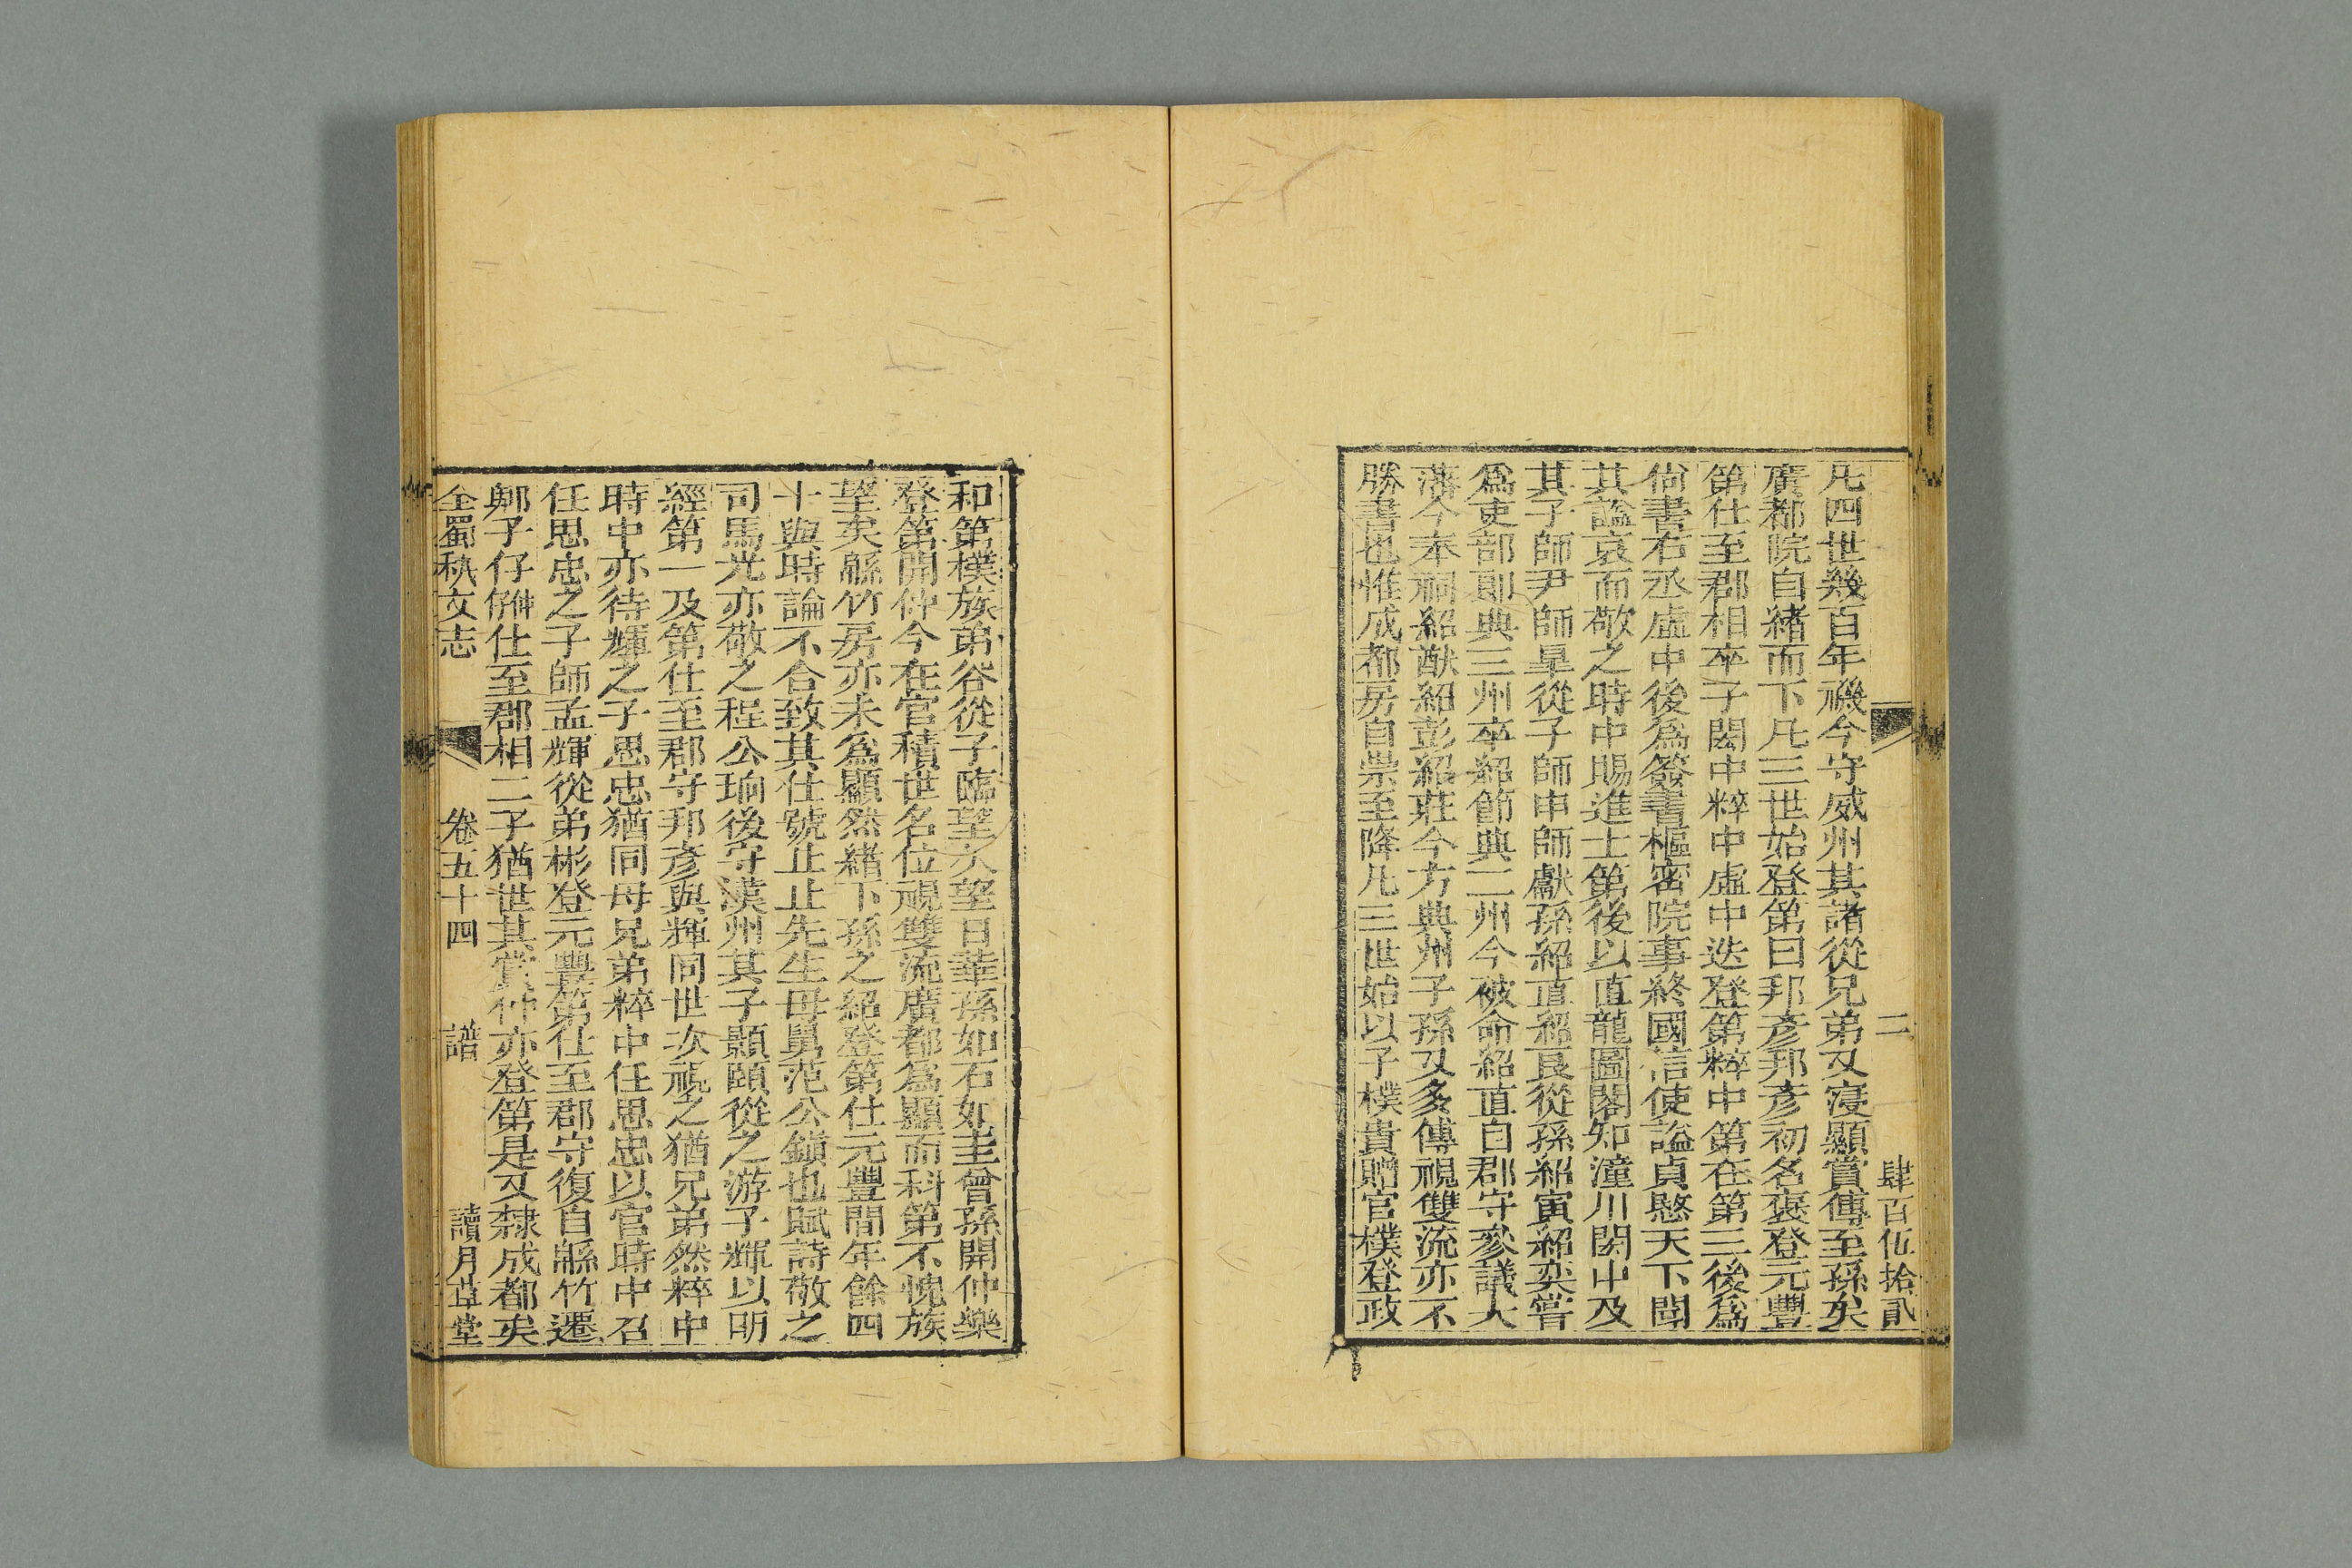 二　肆百伍拾貳
凡四世幾百年磯今守威州其諸從兄弟又寖顯賞傳至孫矣
廣都院自緒而下凡三世始登第曰邦彥邦彥初名褒登元豐
第仕至郡相卒子閎中粹中虛中迭登第粹中第在第三後爲
尙書右丞虛中後爲簽書樞密院事終國信使謚貞愍天下聞
其謚哀而敬之時中賜進士第後以直龍圖閣知潼川閎中及
其子師尹師㬒從子師申師獻孫紹直紹艮從孫紹寅紹奕嘗
爲吏部郎典三州卒紹節典二州今被命紹直自郡守參議大
藩今奉祠紹猷紹彭紹莊今方典州子孫又多傳視雙流亦不
勝書也惟成都房自崇至降凡三世始以子樸貴贈官樸登政
和第樸族弟谷從子臨望久望日華孫如石如圭曾孫開仲樂
登第開仲今在官積世名位視雙流廣都爲顯而科第不愧族
望矣緜竹房亦未爲顯然緒下孫之紹登第仕元豐間年餘四
十與時論不合致其仕號止止先生毋舅范公鎮也賦詩敬之
司馬光亦敬之程公珦後守漢州其子顥頤從之游子輝以明
經第一及第仕至郡守邦彥與輝同世次視之猶兄弟然粹中
時中亦待輝之子思忠猶同母兄弟粹中任思忠以官時中召
任思忠之子師孟輝從弟彬登元豐第仕至郡守復自緜竹遷
郫子仔僻仕至郡相二子猶世其賞仲亦登第是又隸成都矣
全蜀秇文志　卷五十四　譜　讀月草堂